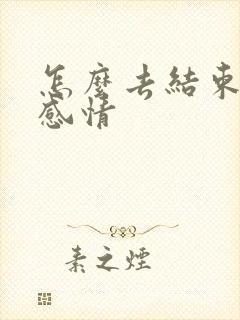 怎麼去結束
感情
素之煙